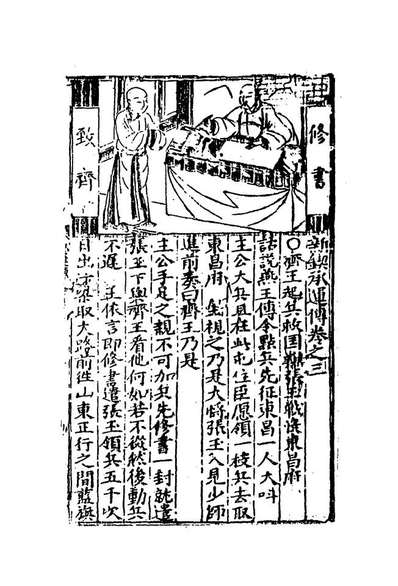 修書
致齊
新鍥承運傳卷之三
○齊王起兵救国難張玉戰東昌府
話說燕王傳令點兵先征東昌一人大呌
主公大兵且在此屯住臣愿領枝兵去取
東昌府視之乃是大將張玉入見少師
進前奏曰齊王乃是
主公手足之親不可加兵先修書一封就遣
張玉下與齊王看他何如若不從然後動兵
不遲王依言即修書遣張玉領兵五千次
日出寨取大路前徃山東正行之間藍旗